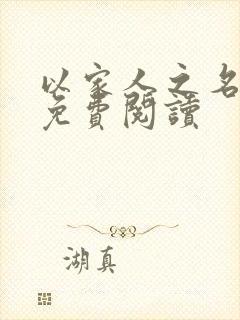 以家人之名
免費閱讀
湖真